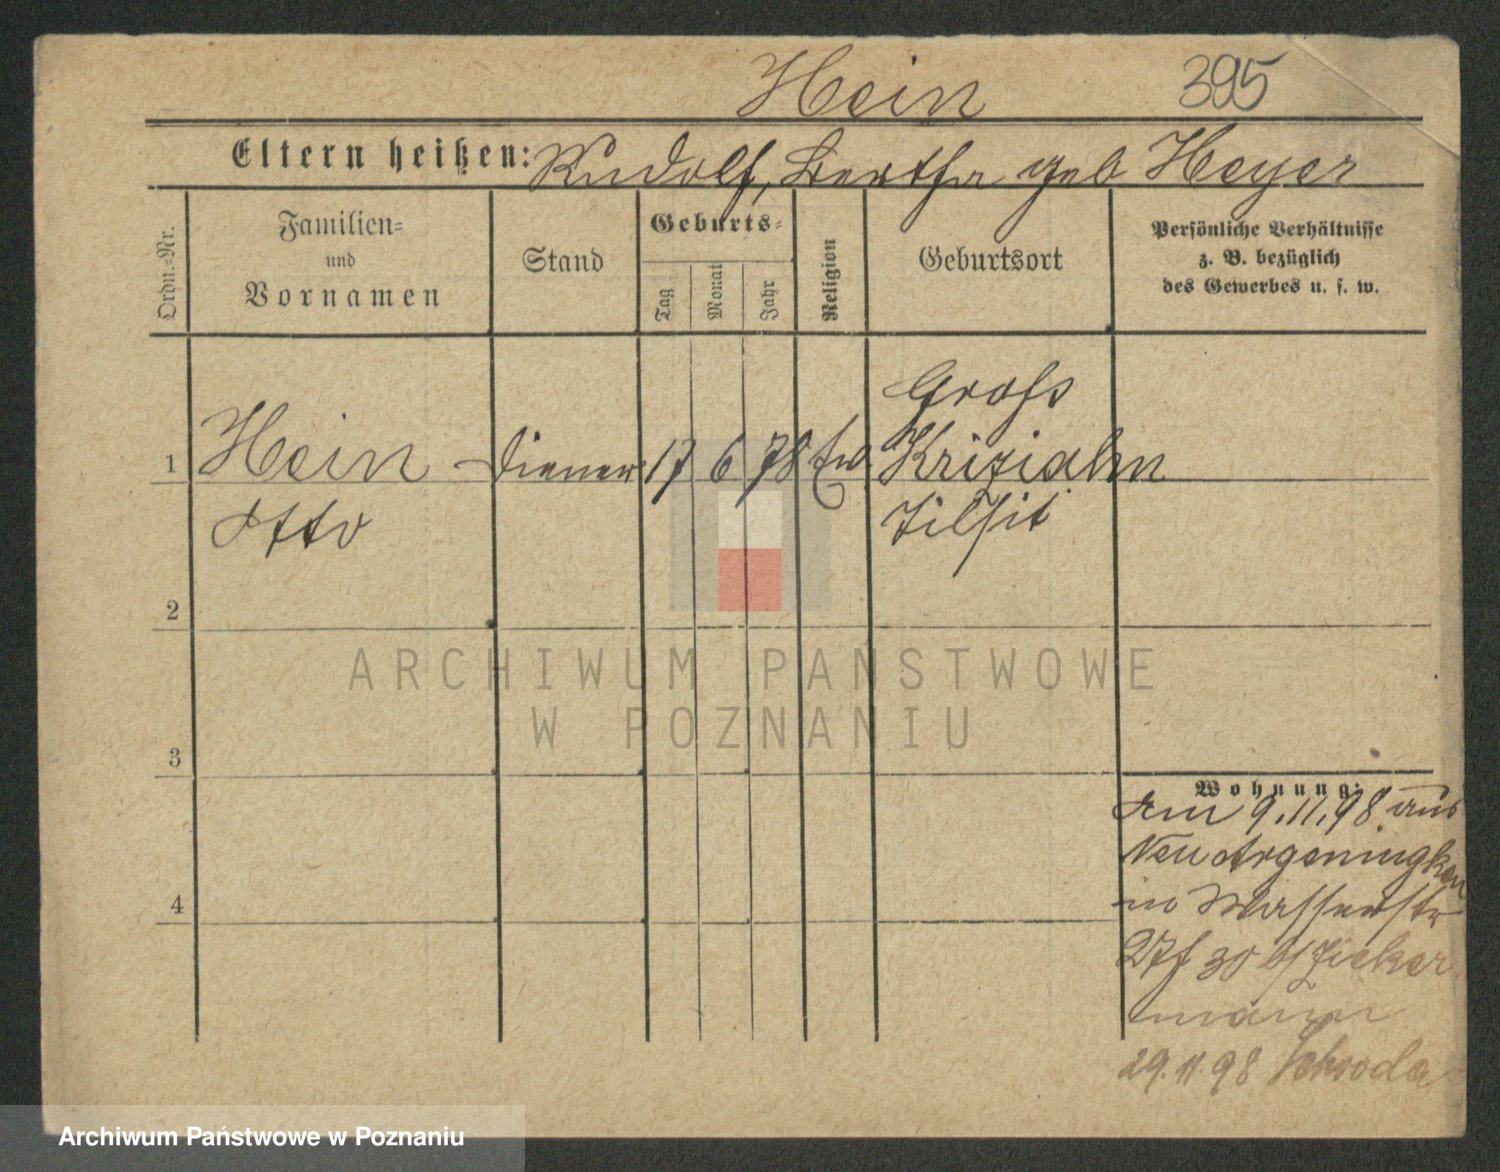 Hein 395
Eltern heißen: Rudolf, Bertha geb Heyer
Ordn.-Nr.
Familien-
und
Vornamen
Stand
Geburts-
Tag
Monat
Jahr
Religion
Geburtsort
Persönliche Verhältnisse
z. B. bezüglich
des Gewerbes u. s. w.
Groß
1 Hein Diener 17 6 78 Ev
Otto
Tilsit
2
ARCHIWUM PAŃSTWOWE
W POZNANIU
3
Wohnung:
am 9.11.98 aus
Neu Argeningken
in Wasserstr
30
mann
4
29.11.98 Schroda
Archiwum Państwowe w Poznaniu